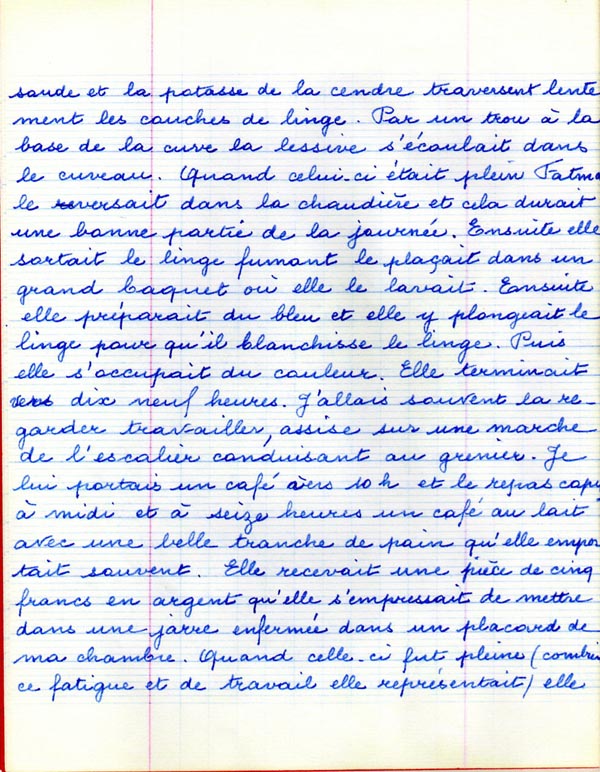 soude et la potasse de la cendre traversent lente
ment les couches de linge. Par un trou à la
base de la cuve la lessive s'écoulait dans
le cuveau. Quand celui-ci était plein Fatma
le versait dans la chaudière et cela durait
une bonne partie de la journée. Ensuite elle
sortait le linge fumant le plaçait dans un
grand baquet où elle le lavait. Ensuite
elle préparait du bleu et elle y plongeait le
linge pour qu'il blanchisse le linge. Puis
elle s'occupait du couleur. Elle terminait
vers dix neuf heures. J'allais souvent la re-
garder travailler, assise sur une marche
de l'escalier conduisant au grenier. Je
lui portais un café vers 10 h et le repas copi
à midi et à seize heures un café au lait
avec une belle tranche de pain qu'elle empor
tait souvent. Elle recevait une pièce de cinq
francs en argent qu'elle s'empressait de mettre
dans une jarre enfermée dans un placard de
ma chambre. Quand celle-ci fut pleine (combien
ce fatigue et de travail elle représentait) elle